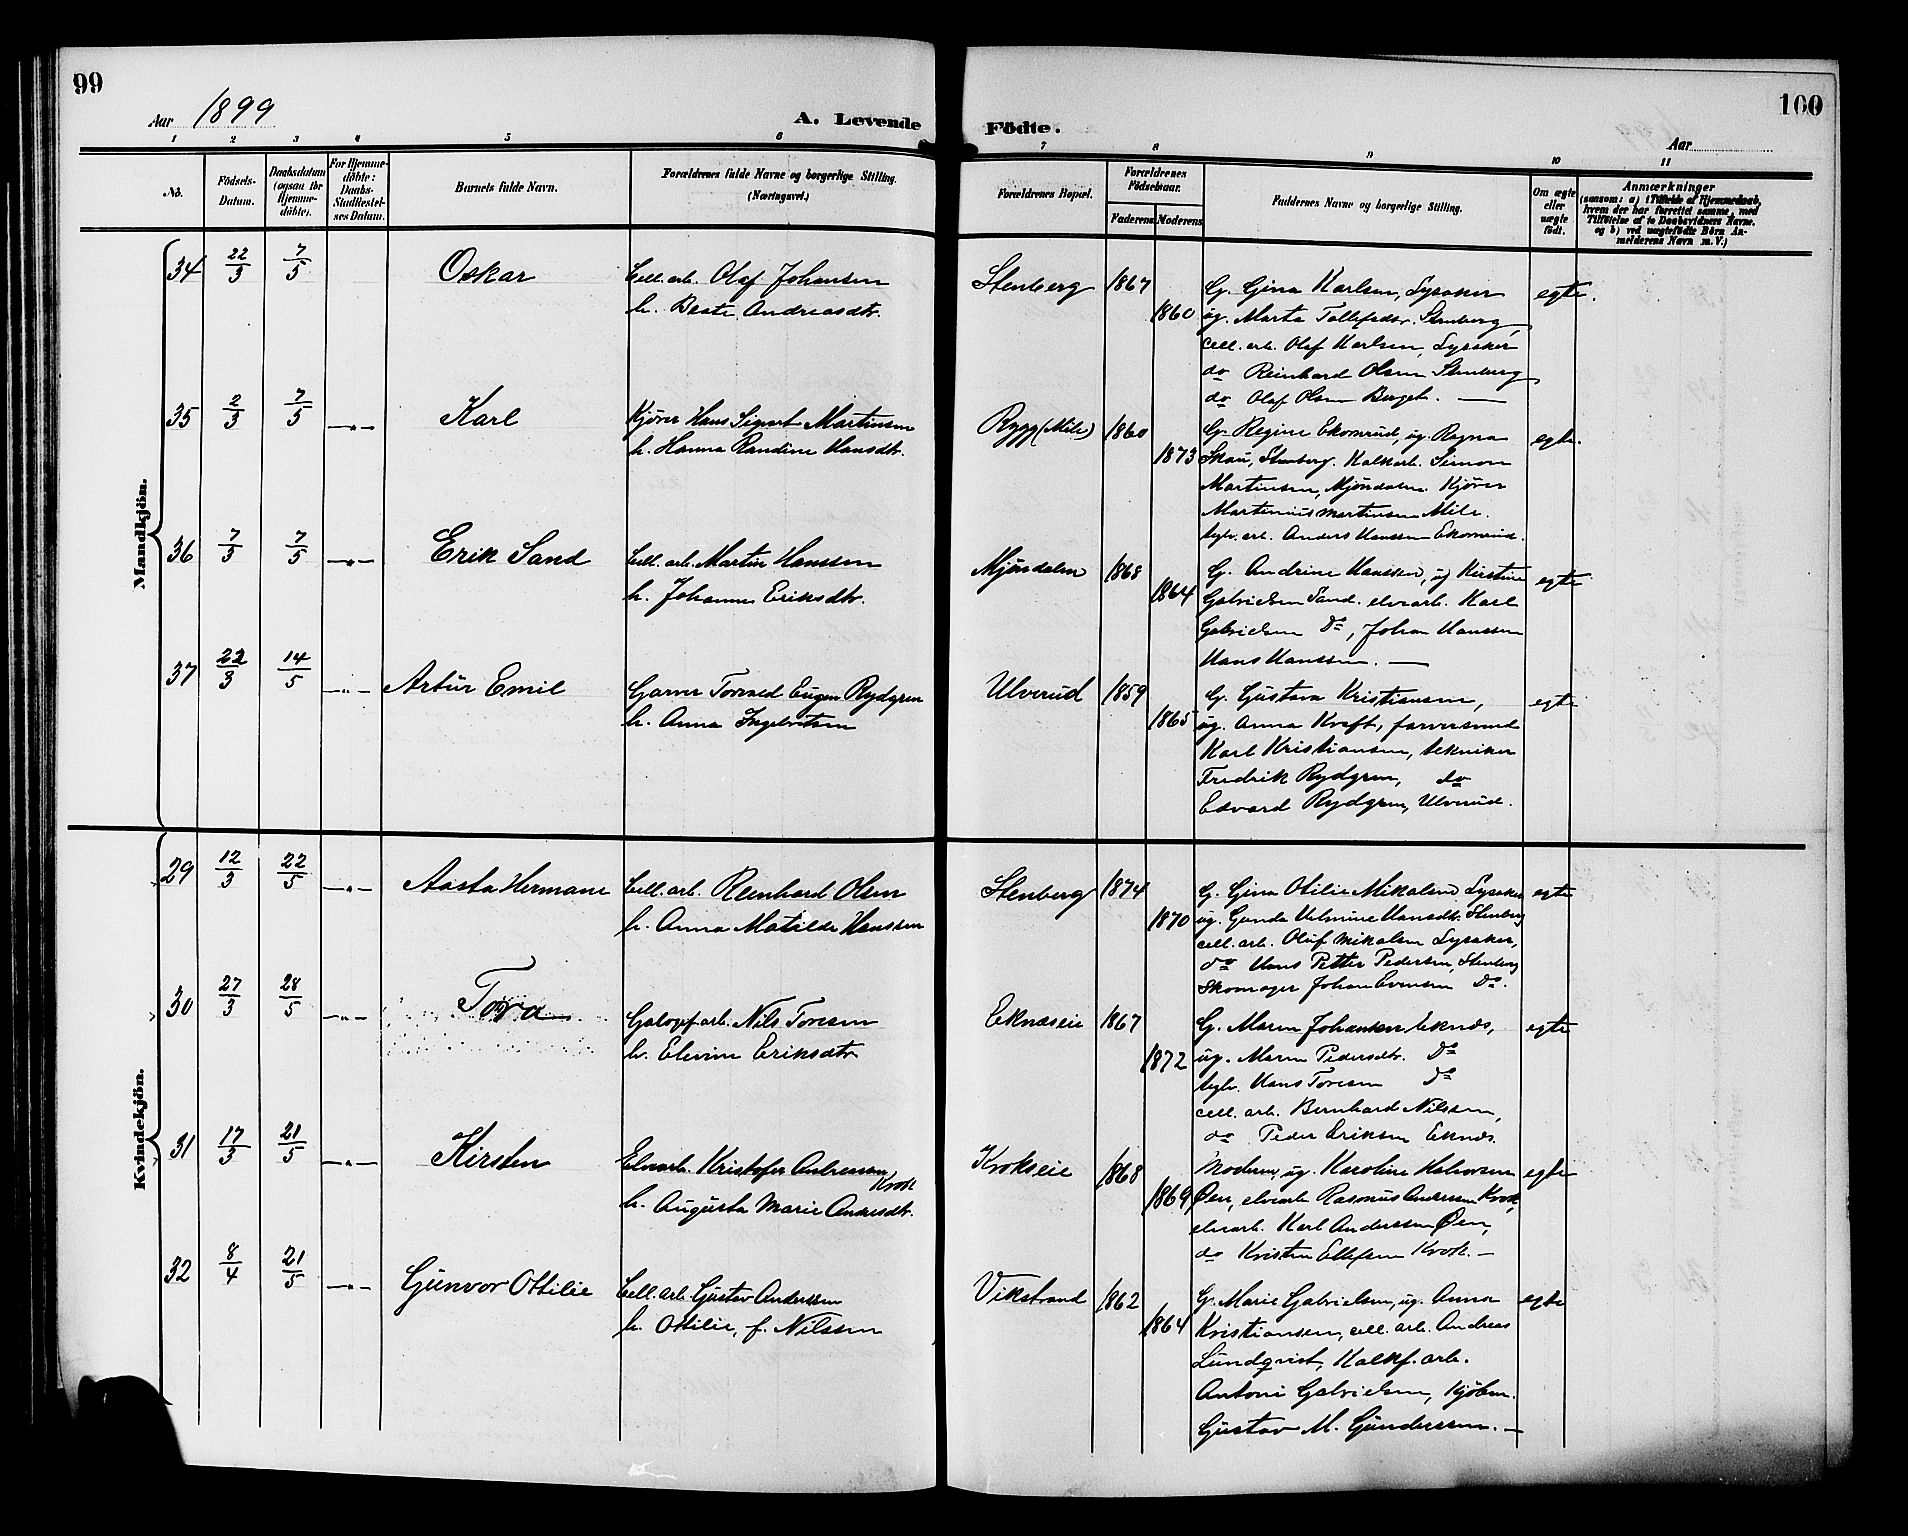 99
100
Aar 1899
A. Levende Födte.
Aar
1 2 3 4 5 6 7 8 9 10 11
No.
Födsels-Datum.
Daabsdatum (ogsaa for Hjemme-döbte).
For Hjemme-döbte: Daabs-Stadfæstel-ses Datum.
Barnets fulde Navn.
Forældrenes fulde Navne og borgerlige Stilling. (Næringsvei.)
Forældrenes Bopæl.
Forældrenes Födselsaar.
Faderens Moderens
Faddernes Navne og borgerlige Stilling.
Om ægte eller uægte födt.
Anmærkninger
(saasom: a) i Tilfælde af Hjemmedaab,
hvem der har forrettet samme, med
Tilföielse af to Daabsvidners Navne.
og b) ved uægtefödte Börn An-
melderens Navn m. V.)
Mandkjön.
34 22/3 7/5 Oskar
Cell. arb. Olaf Johansen
h. Beate Andreasdtr.
Stenberg 1867 1860
G. Gina Karlsen, Lysaker
ug. Marta Tollefsdtr. Stenberg,
cell. arb. Olaf Karlsen, Lysaker
do Reinhard Olsen Stenberg
do Olaf Olsen Berget. —
egte.
35 2/3 7/5 -"- Karl
Kjörer Hans Sigvart Martinsen
h. Hanna Randine Hansdtr.
Rygg (Mile) 1860 1873
G. Regine Ekornrud, ug. Ragna
Skau, Stenberg. Kalkarb. Simon
Martinsen, Mjöndalen. Kjörer
Martinius Martinsen Mile.
teglv. arb. Anders Hanssen Ekornrud.
egte.
36 7/3 7/5 -"- Erik Sand
Cell. arb. Martin Hanssen
h. Johanne Eriksdtr.
Mjöndalen 1868 1864
G. Andrine Hanssen, ug. Kirstine
Gabrielsen Sand. elvearb. Karl
Gabrielsen Do, Johan Hanssen
Hans Hanssen. —
egte
37 22/3 14/5 -"- Artur Emil
Garver Torvald Eugen Rydgren
h. Anna Ingebritsen
Ulverud 1859 1865
G. Gustava Kristiansen,
ug. Anna Kraft, farversvend
Karl Kristiansen, tekniker
Fredrik Rydgren, do
Edvard Rydgren, Ulverud.
egte
Kvindekjön.
29 12/3 22/5 -"- Aasta Hermane
Cell. arb. Reinhard Olsen
h. Anna Matilde Hanssen
Stenberg 1874 1870
G. Gina Otilie Mikalsen Lysaker
ug. Gunda Velmine Hansdtr. Stenberg
cell. arb. Oluf Mikalsen Lysaker,
do Hans Petter Pedersen, Stenberg
Skomager Johan Evensen Do.
egte
30 27/3 28/5 -"- Tora
arb. Nils Toresen
h. Elevine Eriksdtr
Eknæseie 1867 1872
G. Maren Johansen Eknæs,
ug. Maren Pedersdtr. Do
teglv. Hans Toresen Do
cell. arb. Bernhard Nilssen,
do Peder Eriksen Eknæs.
egte
31 17/3 21/5 -"- Kirsten
Elvearb. Kristofer Andreassen Krok
h. Augusta Marie Andersdtr.
Krokseie 1868 1869
Moderen, ug. Karoline Halvorsen
Øen, elvearb. Rasmus Anderssen Krok,
elvearb. Karl Anderssen Øen,
do Kristen Ellefsen Krok. —
egte
32 8/4 21/5 -"- Gunvor Ottilie
Cell. arb. Gustav Anderssen
h. Ottilie, f. Nilssen
Vikstrand 1862 1864
G. Marie Gabrielsen, ug. Anna
Kristiansen, cell. arb. Andreas
Lundqvist, Kalkf. arb.
Antoni Gabrielsen, Kjöbm.
Gustav M. Gunderssen. —
egte